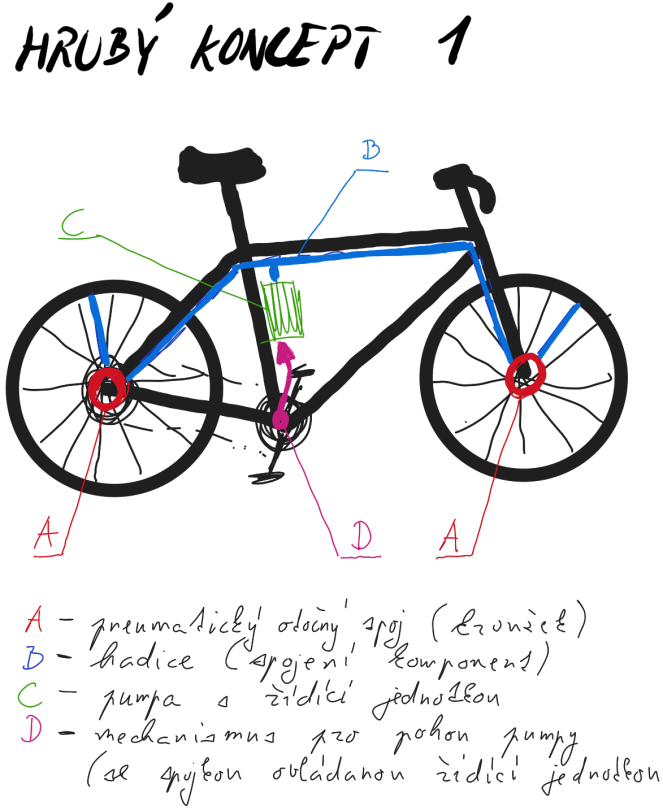 HRUBÝ KONCEPT 1
B
C
A
D
A
A - pneumatický otočný spoj (kroužek)
B - hadice (spojení komponent)
C - pumpa s řídící jednotkou
D - mechanismus pro pohon pumpy
(se spojkou ovládanou řídící jednotkou